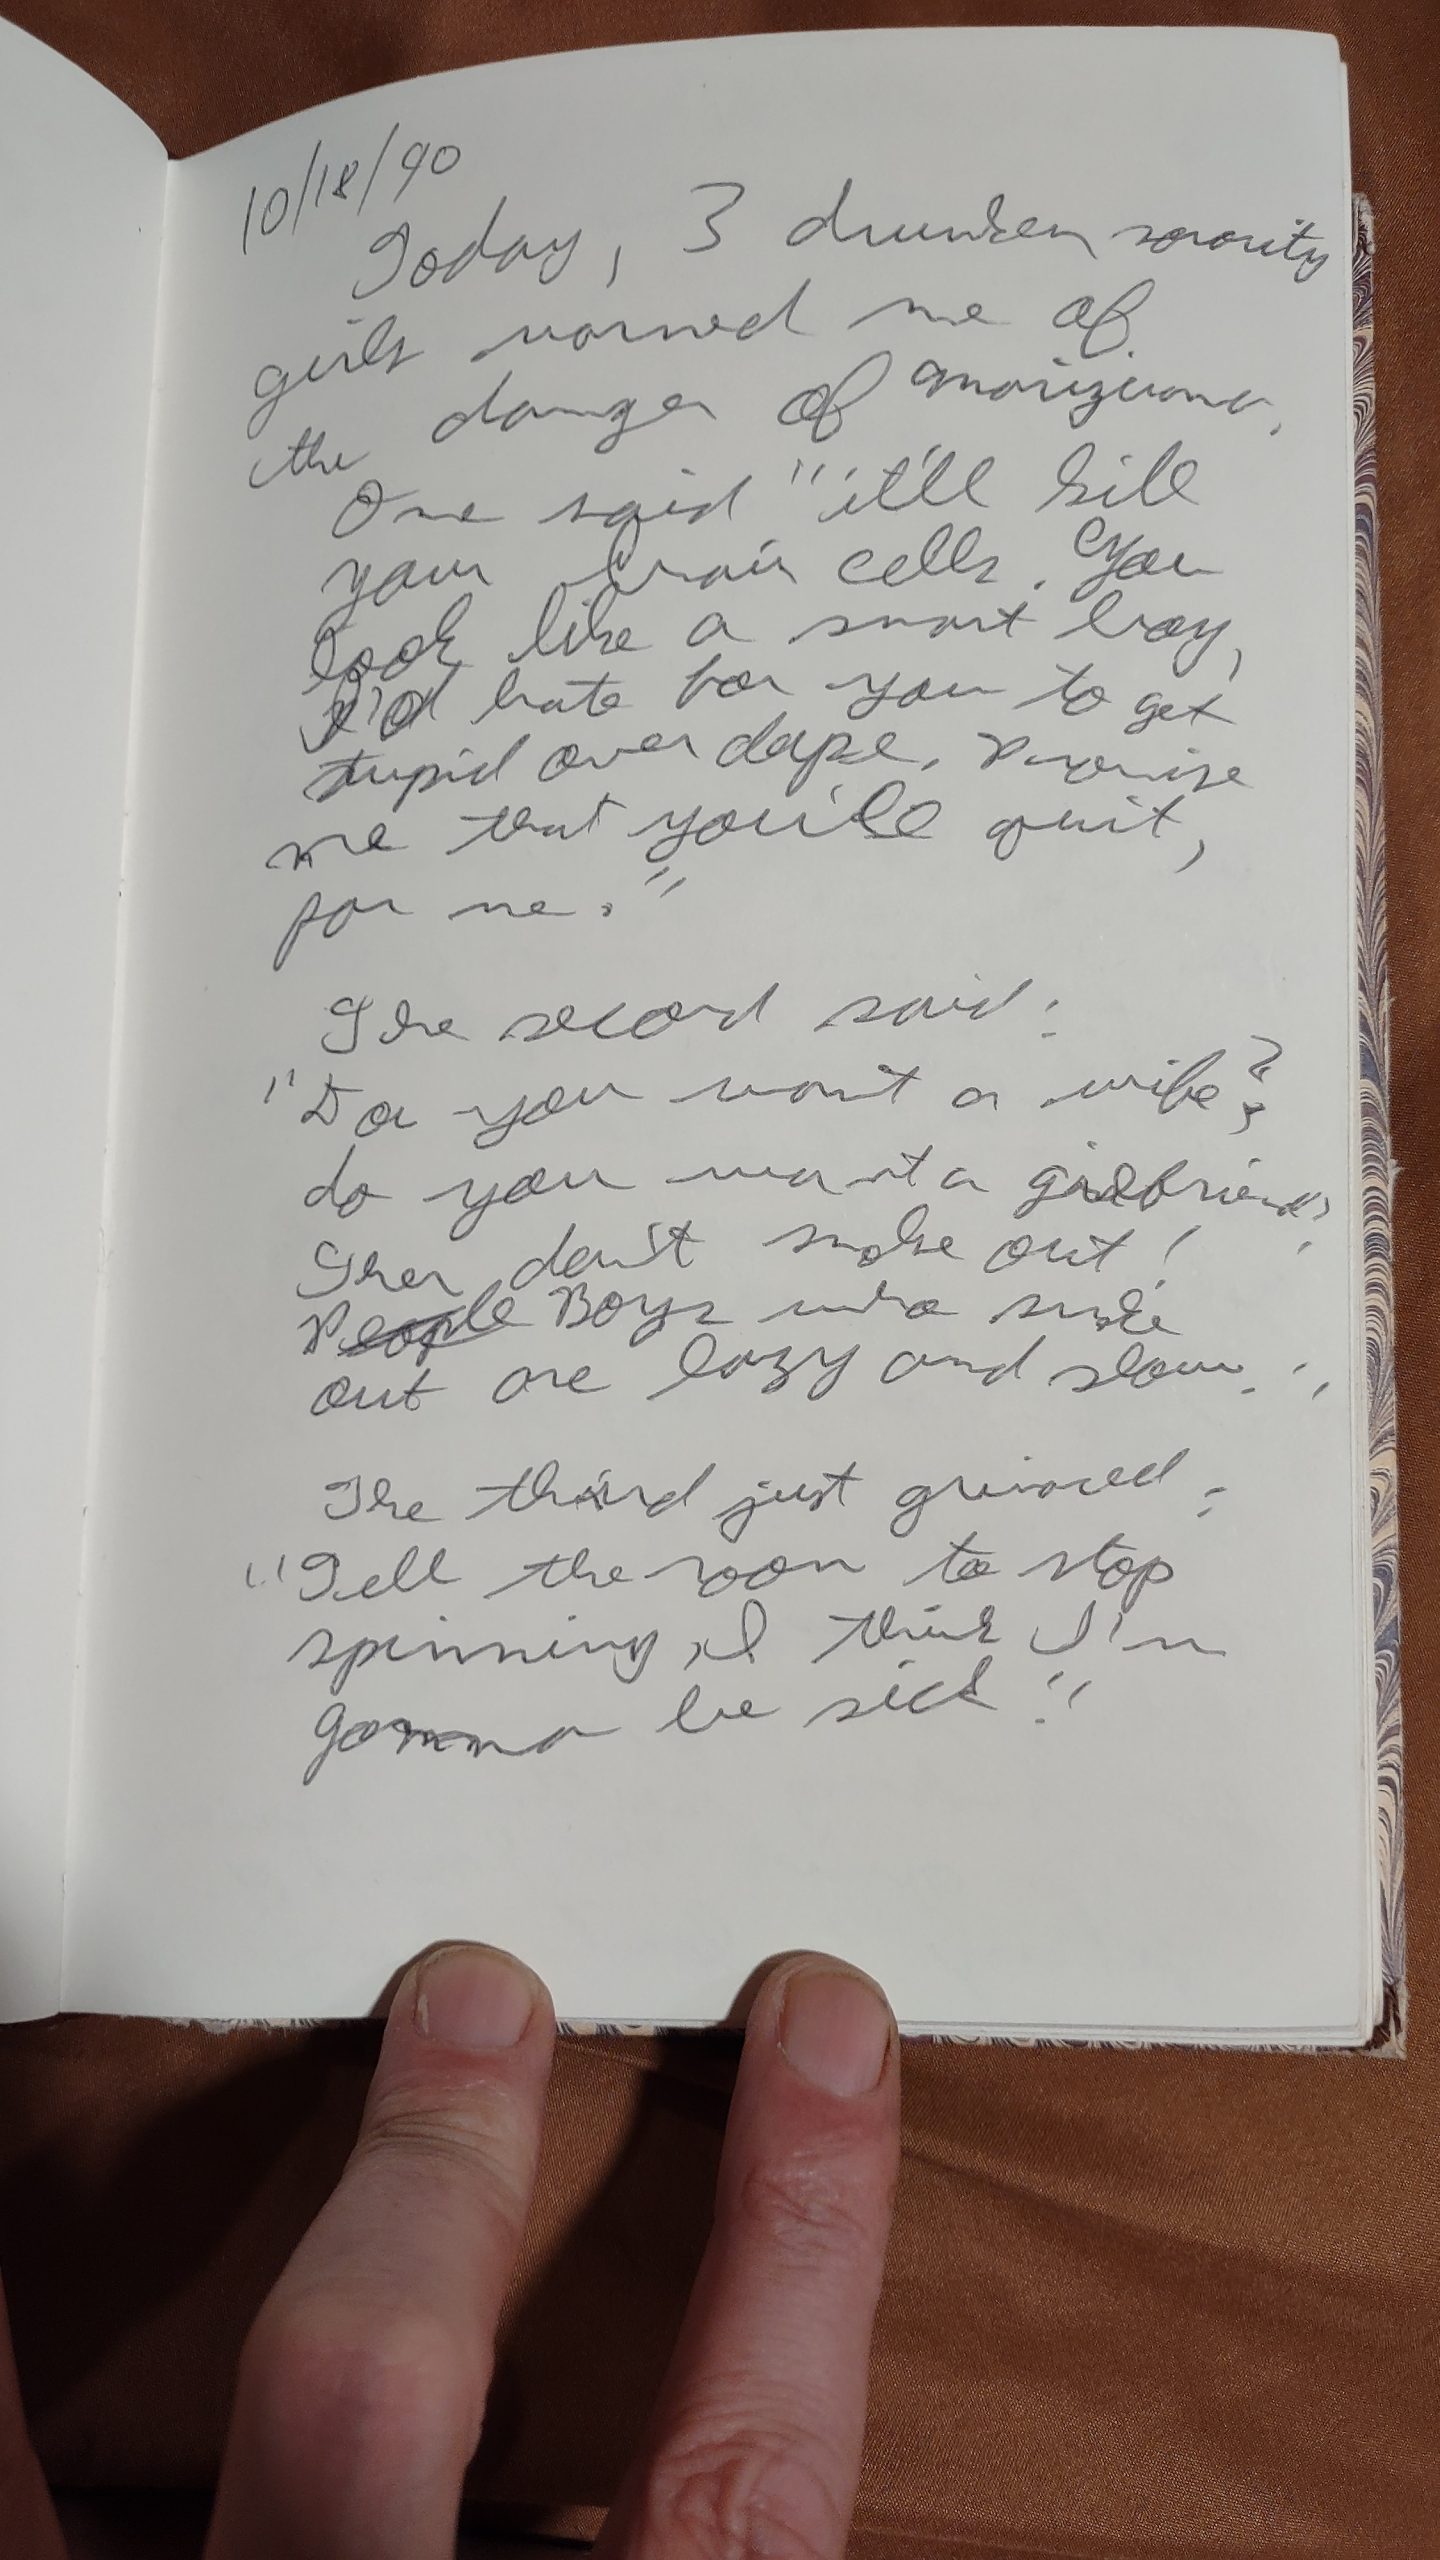 10/18/90
Today, 3 drunken sorority
girls warned me of
the danger of marijuana.
One said "it'll kill
your brain cells. You
look like a smart boy,
I'd hate for you to get
stupid over dope. Promise
me that you'll quit,
for me."
The second said:
"Do you want a wife?
do you want a girlfriend?
Then don't smoke out!
People Boys who smoke
out are lazy and slow."
The third just grinned:
"Tell the room to stop
spinning, I think I'm
gonna be sick"